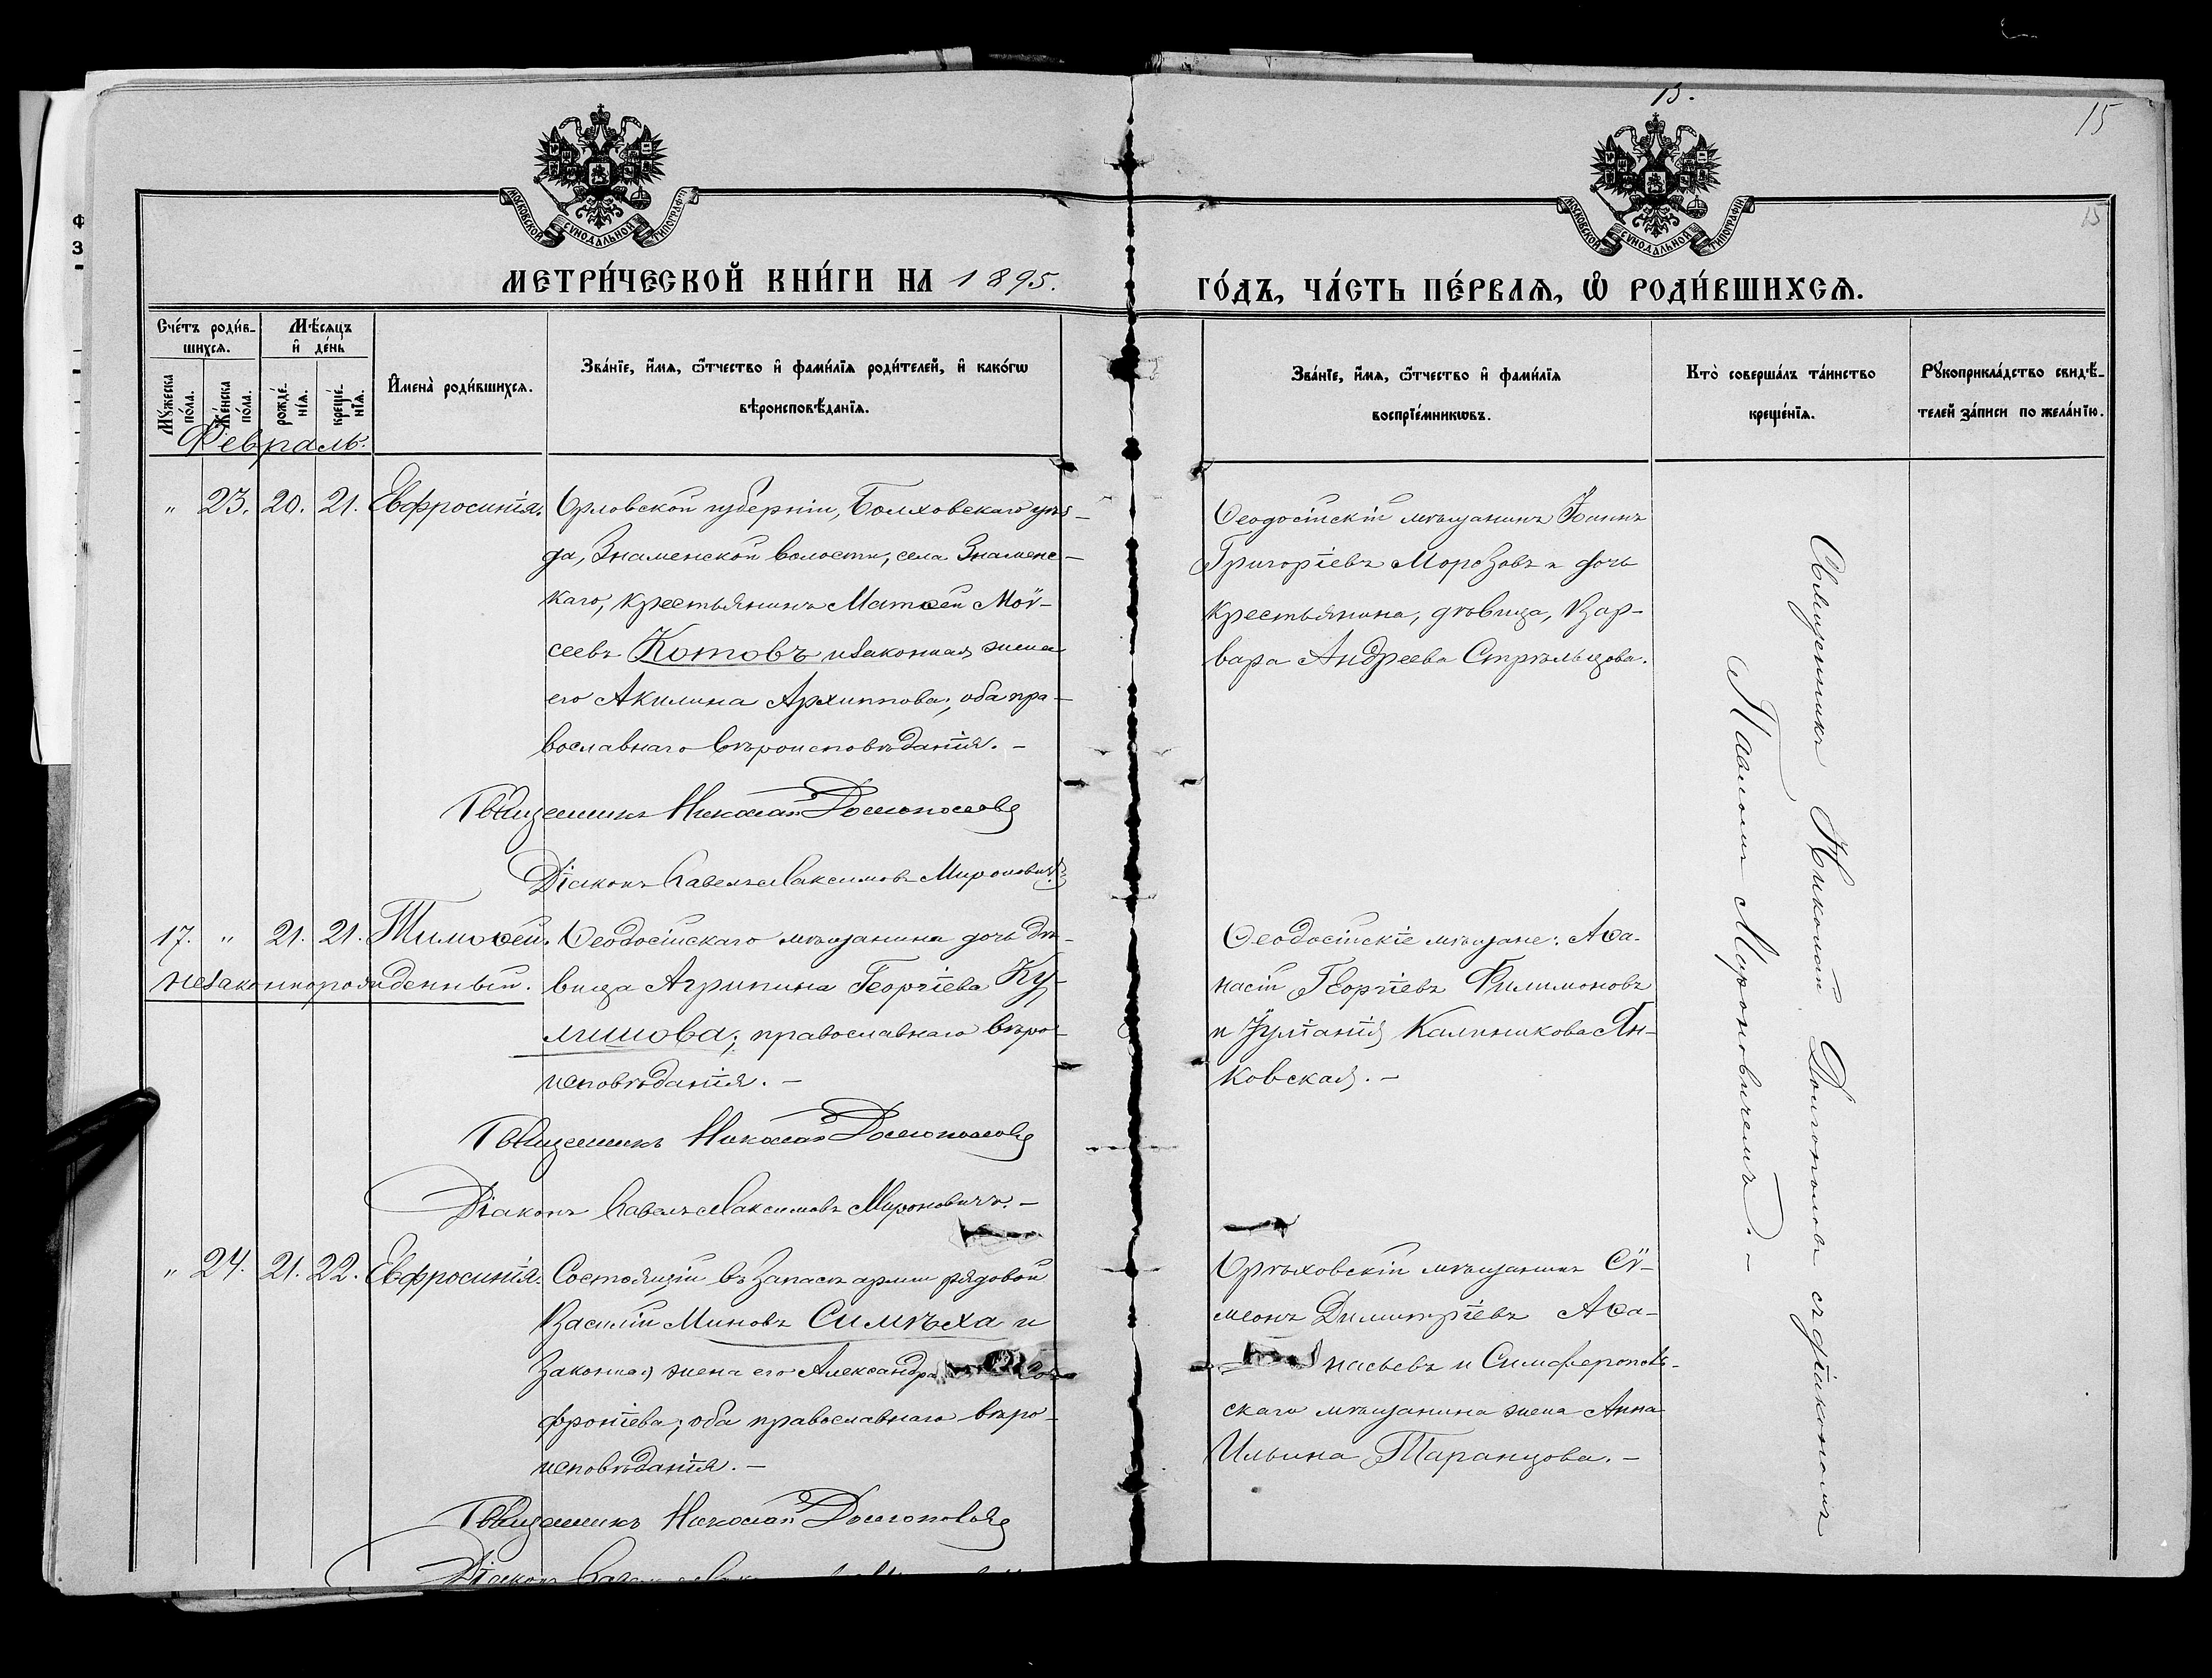 15.
15
15
МОСКОВСКОЙ СУНОДАЛЬНОЙ ТИПОГРАФІИ
МОСКОВСКОЙ СУНОДАЛЬНОЙ ТИПОГРАФІИ
МЕТРИ́ЧЕСКОЙ КНИ́ГИ НА 1895.
ГО́ДЪ, ЧА́СТЬ ПЕ́РВАѦ, Ѡ РОДИ́ВШИХСѦ.
Сче́тъ роди́в-
шихсѧ.
Мѣ́сѧцъ
и҆ де́нь
Мꙋ́жеска
по́ла.
Же́нска
по́ла.
рожде́-
нїѧ.
креще́-
нїѧ.
И҆мена̀ роди́вшихсѧ.
Зва́нїе, и҆́мѧ, ѻ҆́тчество и҆ фами́лїѧ роди́телей, и҆ како́гѡ
вѣроисповѣ́данїѧ.
Зва́нїе, и҆́мѧ, ѻ҆́тчество и҆ фами́лїѧ
воспрїе́мникѡвъ.
Кто̀ соверша́лъ та́инство
креще́нїѧ.
Рꙋкоприкла́дство свидѣ́-
телей за́писи по жела́нїю.
Февраль.
" 23. 20. 21. Евфросинія. Орловской губерніи, Болховскаго уѣз-
да, Знаменской волости, села Знаменс-
каго, крестьянинъ Матѳей Моѵ-
сеевъ Котовъ и законная жена
его Акилина Архиппова; оба пра-
вославнаго вѣроисповѣданія. –
Священникъ Николай Долгополовъ
Діаконъ Павелъ Максимовъ Мироновичъ.
Ѳеодосійскій мѣщанинъ Іоаннъ
Григоріевъ Морозовъ и дочь
крестьянина, дѣвица, Вар-
вара Андреева Стрѣльцова.
Священникъ Николай Долгополовъ съ діакономъ
Павломъ Мироновичемъ. –
17. " 21. 21. Тимоѳей. Ѳеодосійскаго мѣщанина дочь дѣ-
незаконнорожденный. вица Агрипина Георгіева Ку-
лишова; православнаго вѣро-
исповѣданія. –
Священникъ Николай Долгополовъ
Діаконъ Павелъ Максимовъ Мироновичъ. –
Ѳеодосійскіе мѣщане: Аѳа-
насій Георгіевъ Филимоновъ
и Іуліанія Калиникова Ян-
ковская. –
" 24. 21. 22. Евфросинія. Состоящій въ запасѣ арміи рядовой
Василій Миновъ Симѣха и
законная жена его Александра
фроніева; оба православнаго вѣро-
исповѣданія. –
Священникъ Николай Долгополовъ
Діаконъ Павелъ
Орѣховскій мѣщанинъ Сѵ-
меонъ Димитріевъ Аѳа-
насьевъ и Симферополь-
скаго мѣщанина жена Анна
Ильина Таранцова. –